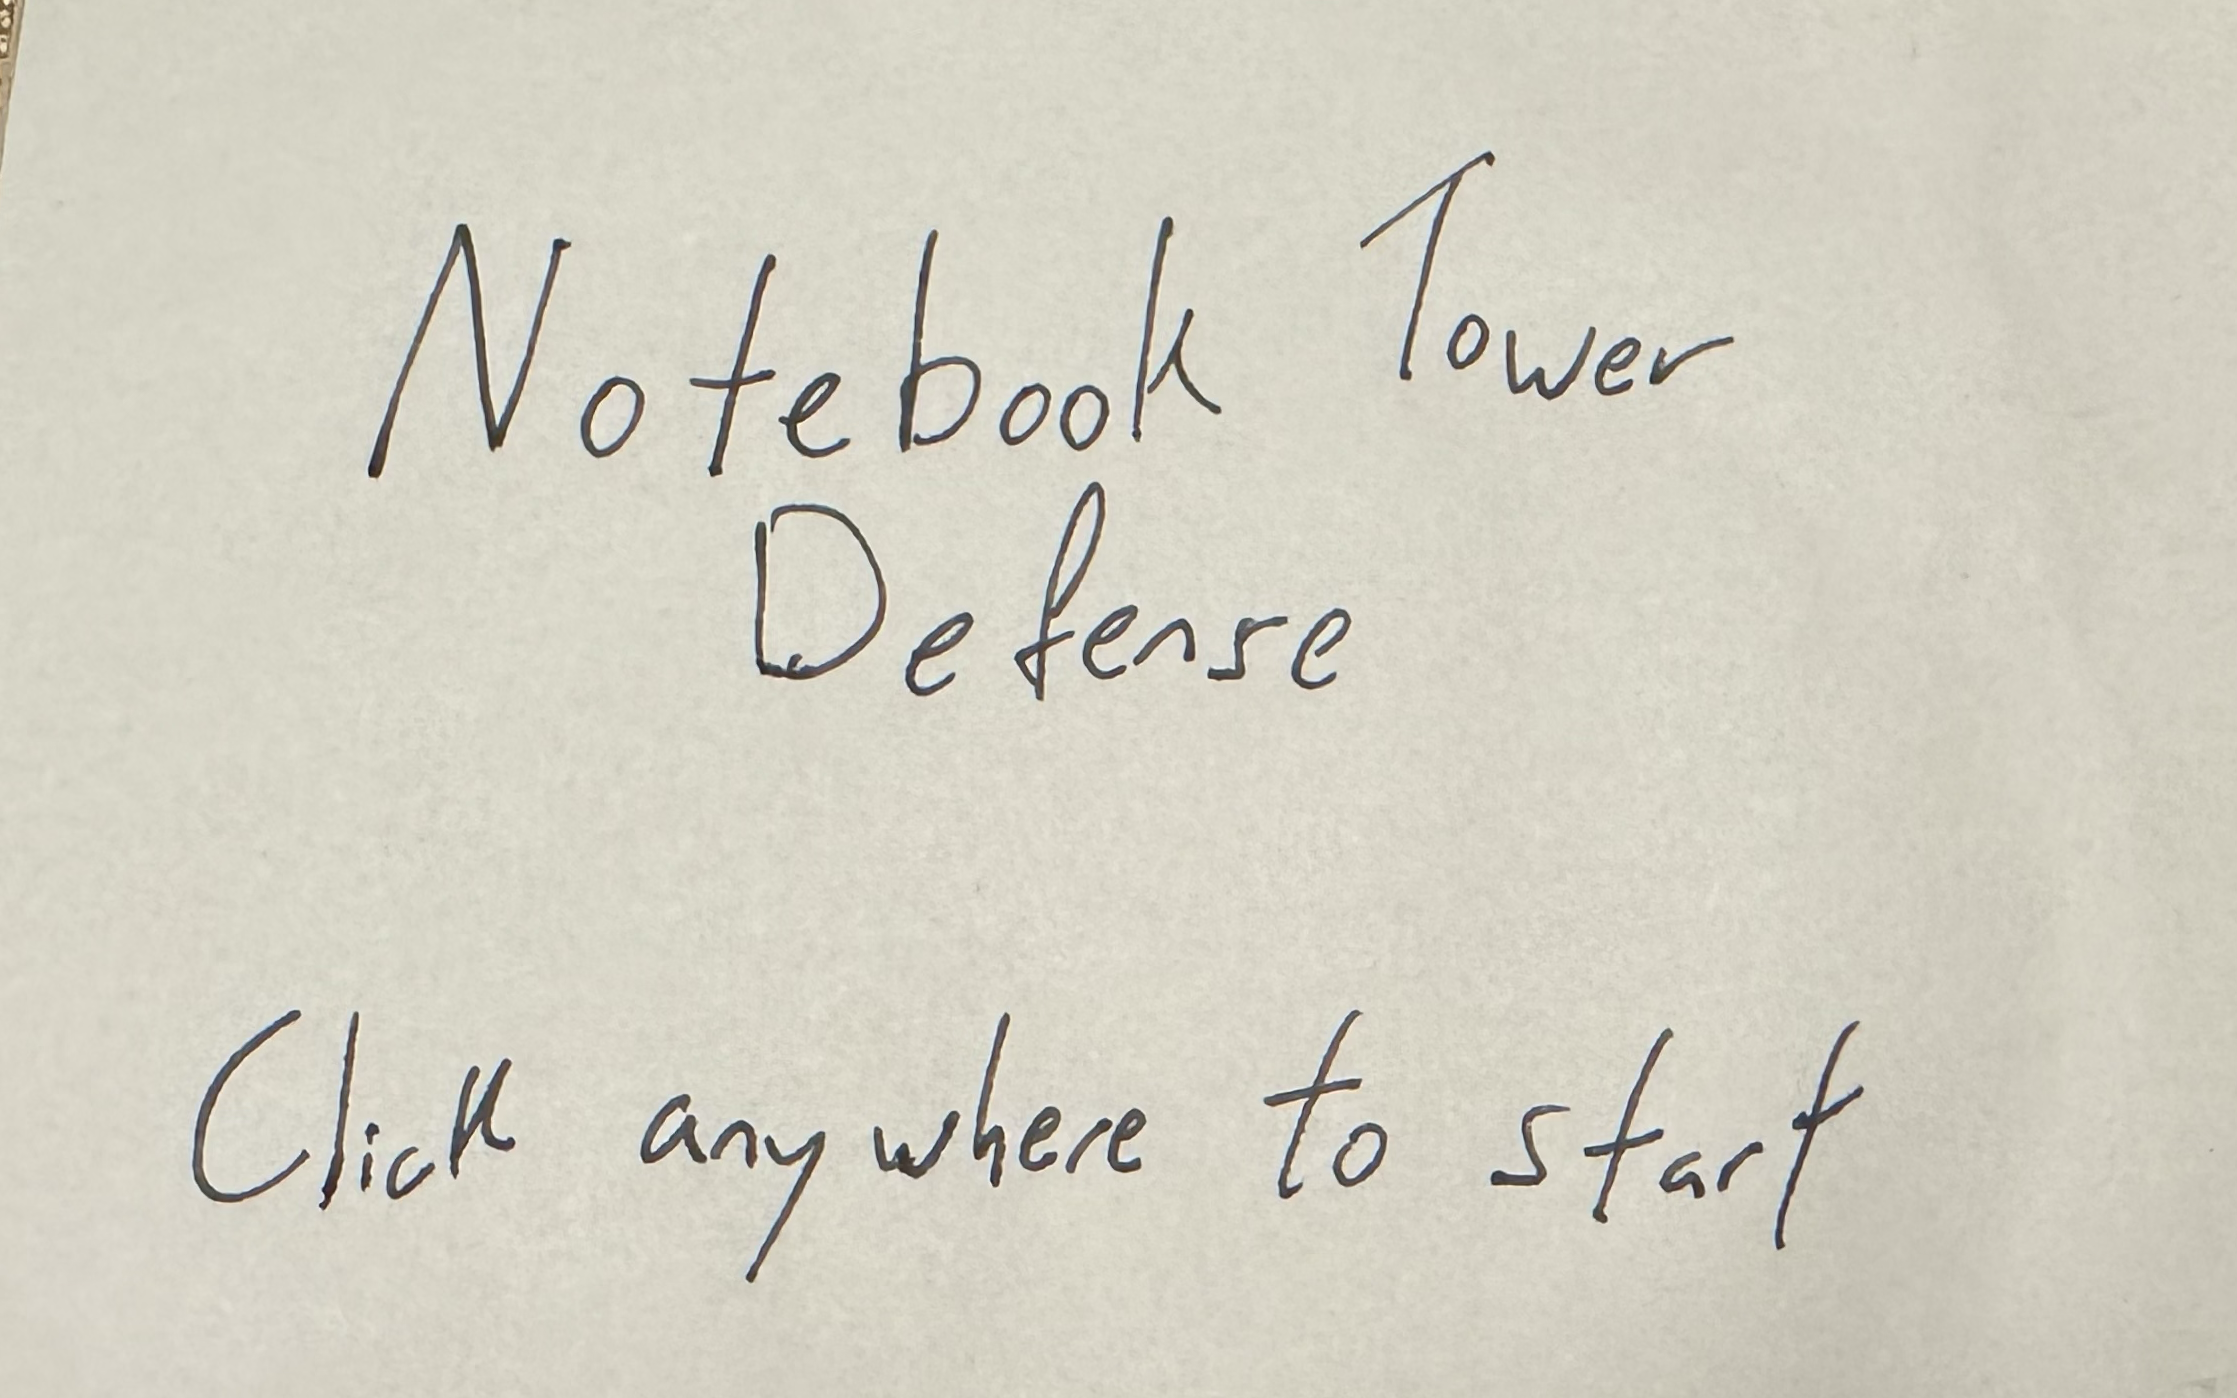 Notebook Tower
Defense
Click anywhere to start